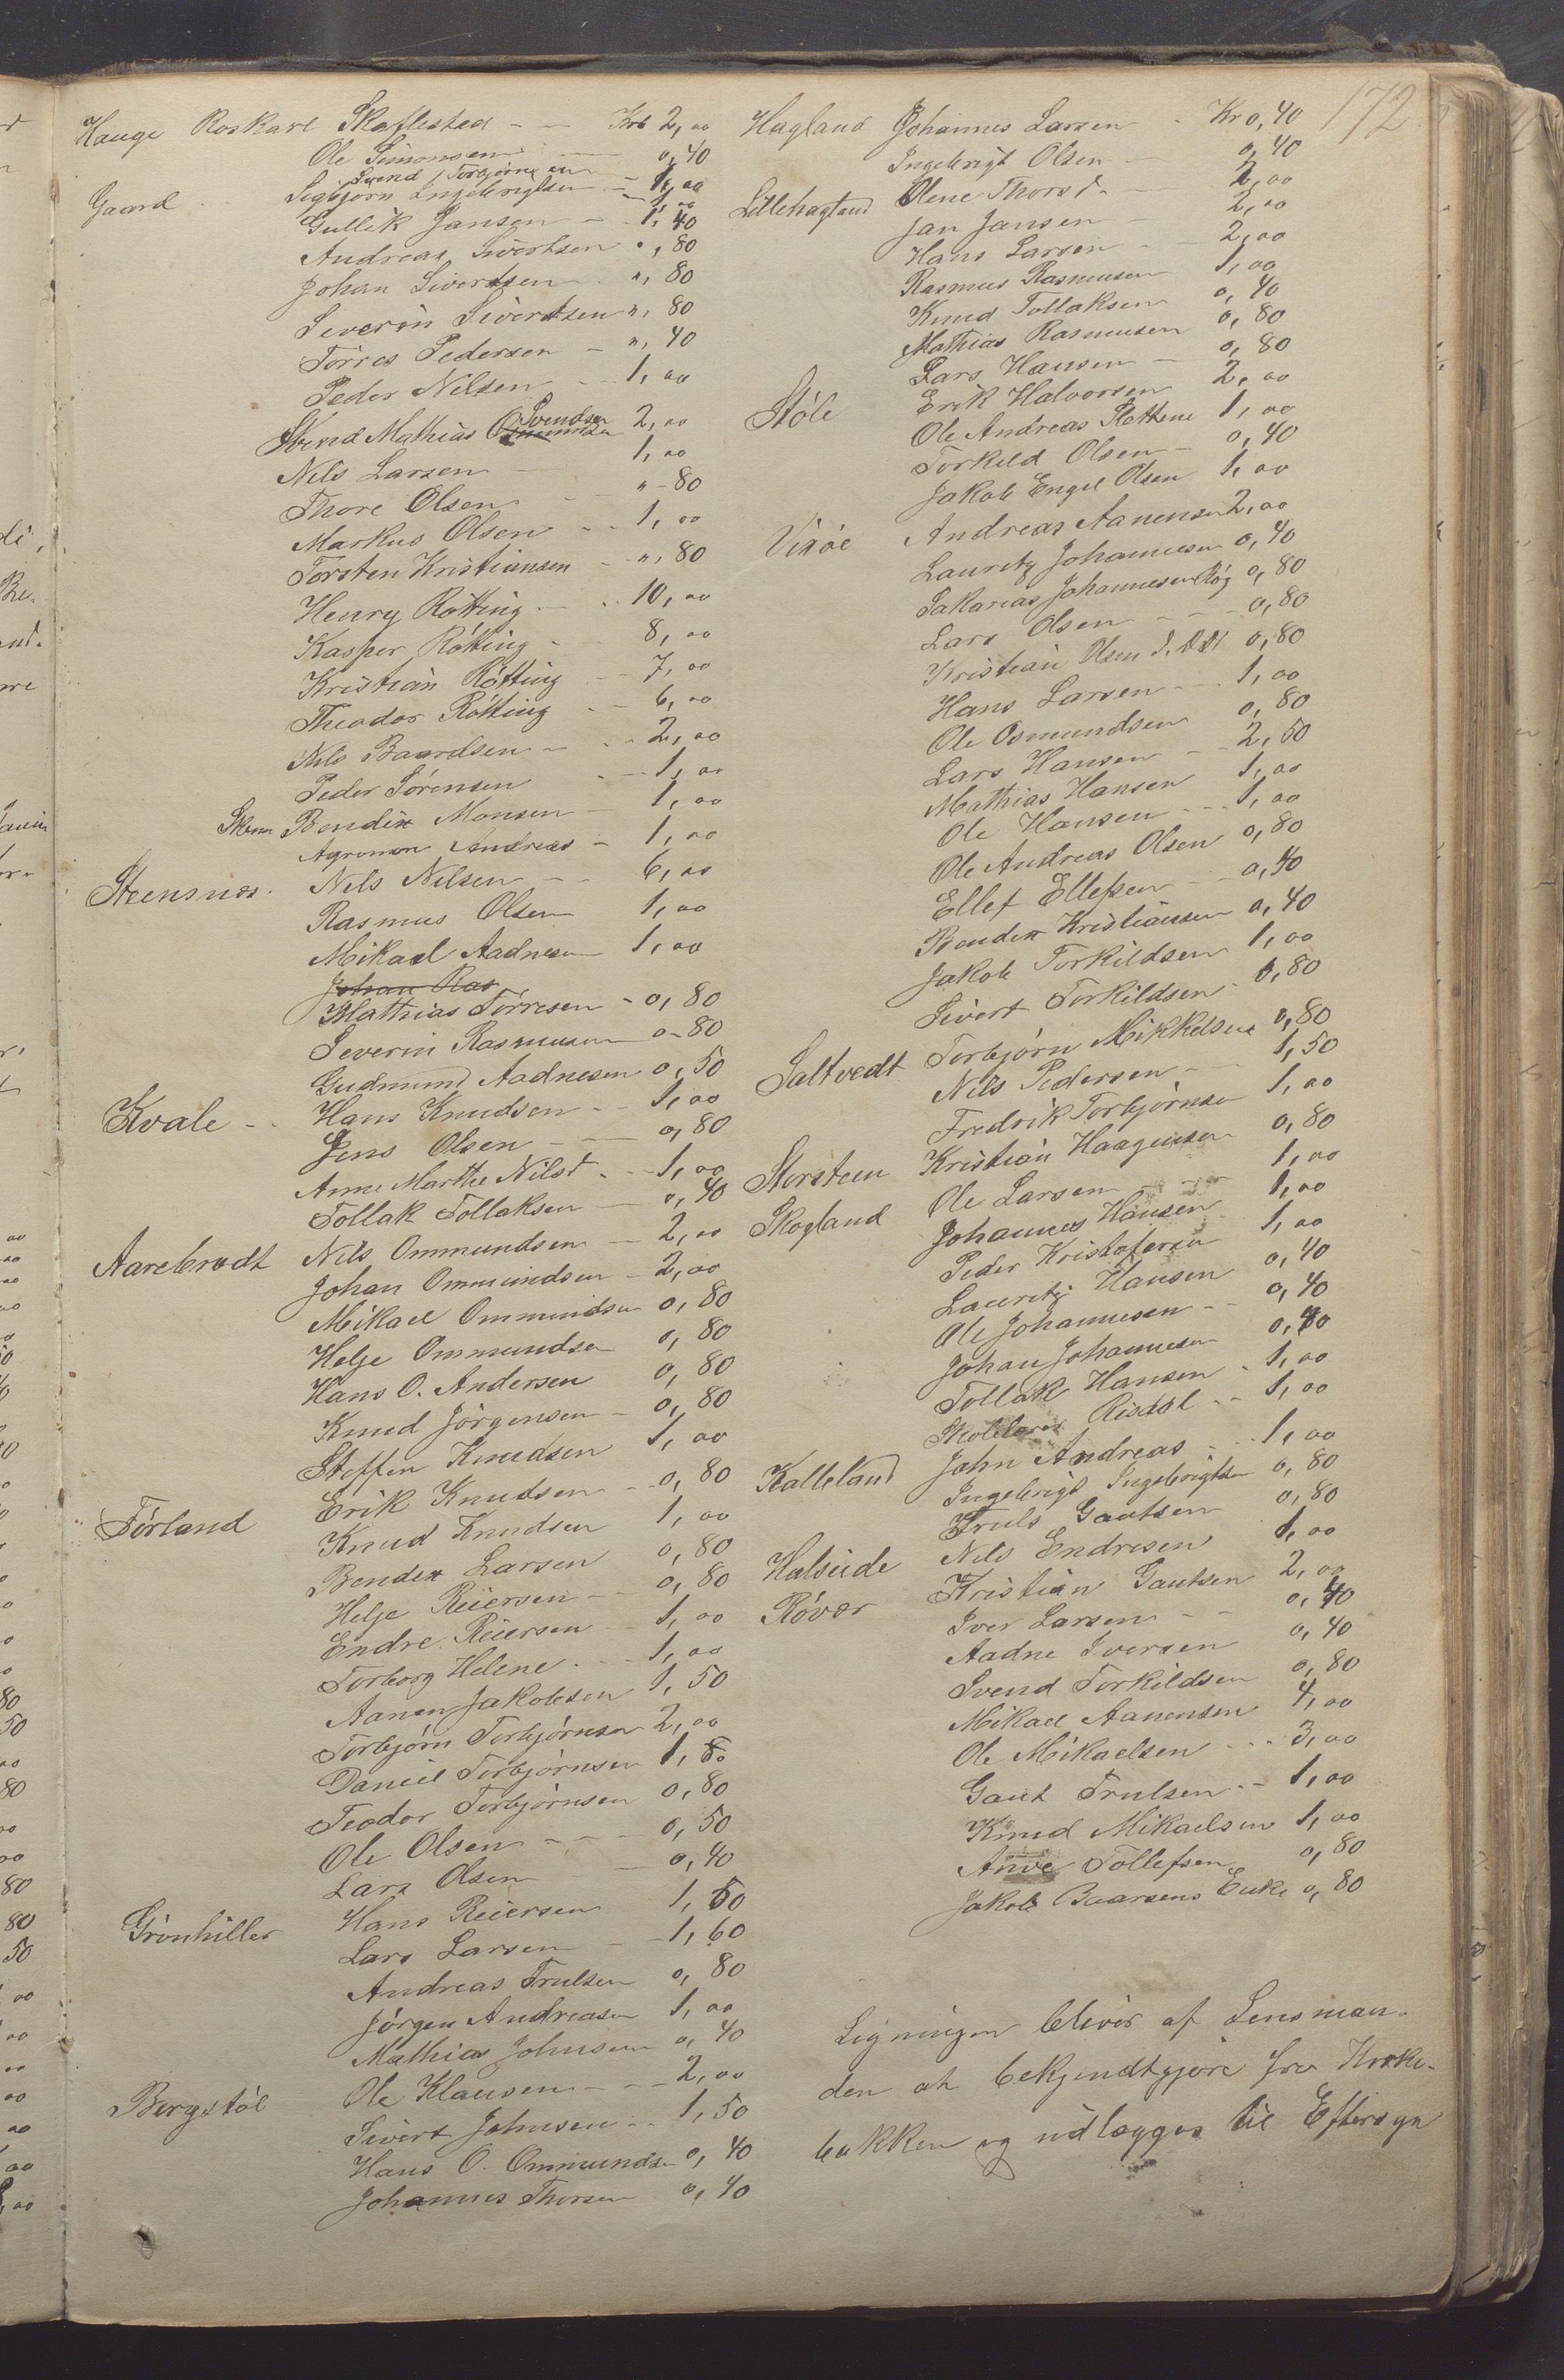 172
Hauge Roskarl Skaflestad - - Kr 2,00
Ole Simonsen 0,40
Svend Torbjørnsen 1,00
Gaard Sigbjørn Ingebrigtsen - 1,00
Gullik Jansen - 1,40
Andreas Sivertsen 0,80
Johan Sivertsen ", 80
Severin Sivertsen ", 80
Törres Pedersen - ", 40
Peder Nilsen - 1,00
Svend Mathias Svendsen 2,00
Nils Larsen - 1,00
Thore Olsen - " - 80
Markus Olsen - - 1,00
Torsten Kristiansen - ", 80
Henry Rötting - - 10,00
Kasper Rötting - 8,00
Kristian Rötting - 7,00
Theodor Rötting - 6,00
Nils Baardsen - - 2,00
Peder Sörensen - 1,00
Bendix Monsen 1,00
Agronom Andreas - 1,00
Steensnæs. Nils Nilsen - - 6,00
Rasmus Olsen 1,00
Mikael Aadnesen 1,00
Johan Ras
Mathias Törresen - 0,80
Severin Rasmussen 0-80
Gudmund Aadnesen 0,50
Kvale - - Hans Knudsen - - 1,00
Jens Olsen - - 0,80
Anne Marthe Nilsd. - 1,00
Tollak Tollaksen - 0,40
Aarebrodt Nils Ommundsen - 2,00
Johan Ommundsen - 2,00
Mikael Ommundsen 0,80
Helge Ommundsen 0,80
Hans O. Andersen 0,80
Knud Jörgensen - 0,80
Steffen Knudsen 1,00
Erik Knudsen - - 0,80
Förland Knud Knudsen 1,00
Bendix Larsen 0,80
Helge Reiersen - 0,80
Endre Reiersen - 1,00
Torborg Helene - - 1,00
Aanen Jakobsen 1,50
Torbjörn Torbjörnsen 2,00
Daniel Torbjörnsen 1,80
Teodor Torbjörnsen 0,80
Ole Olsen - - - 0,50
Lars Olsen - 0,40
Grönhiller Hans Reiersen 1,50
Lars Larsen - - 1,60
Andreas Trulsen 0,80
Jörgen Andreasen 1,00
Mathias Johnsen 0,40
Bergstöl Ole Klausen - - - 2,00
Sivert Johnsen - - 1,50
Hans O. Ommundsen 0,40
Johannes Thorsen 0,40
Hagland Johannes Larsen - Kr 0,40
Ingebrigt Olsen - 0,40
Olene Thorsd. - 2,00
Lillehagland Jan Jansen - 2,00
Hans Larsen - - 2,00
Rasmus Rasmusen 1,00
Knud Tollaksen 0,40
Mathias Rasmusen 0,80
Lars Hansen - 0,80
Stöle Erik Halvorsen 2,00
Ole Andreas Slettene 1,00
Torkild Olsen - 0,40
Jakob Engel Olsen 1,00
Vixöe Andreas Aanensen 2,00
Lauritz Johannesen 0,40
Sakarias Johannesen 0,80
Lars Olsen - - 0,80
Kristian Olsen 0,80
Hans Larsen - - 1,00
Ole Osmundsen 0,80
Lars Hansen - - 2,50
Mathias Hansen 1,00
Ole Hansen - - - 1,00
Ole Andreas Olsen 0,80
Ellef Ellefsen - - 0,40
Bendix Kristiansen 0,40
Jakob Torkildsen 1,00
Sivert Torkildsen - 0,80
Saltvedt Torbjörn Mikkelsen 0,80
Nils Pedersen - - 1,50
Fredrik Torbjörnsen 1,00
Storsteen Kristian Haagensen 0,80
Ole Larsen - - 1,00
Skogland Johannes Hansen 1,00
Peder Kristofersen 1,00
Lauritz Hansen 0,40
Ole Johannesen - - 0,40
Johan Johannesen 0,40
Tollak Hansen - 1,00
Ristöl - - 1,00
Kalleland John Andreas - - 1,00
Ingebrigt Ingebrigtsen 0,80
Truls Gautsen 0,80
Halseide Nils Endresen 1,00
Rövær Kristian Gautsen 2,00
Iver Larsen - - 0,40
Aadne Iversen 0,40
Svend Torkildsen 0,80
Mikael Aanensen 4,00
Ole Mikaelsen - - - 3,00
Gaut Trulsen - - 1,00
Knud Mikaelsen 1,00
Anve Tollefsen 0,80
Jakob Baarsens Enke 0,80
Ligningen bliver af Lensman-
den at bekjendtgjöre fra Kirke-
bakken og udlægges til Eftersyn